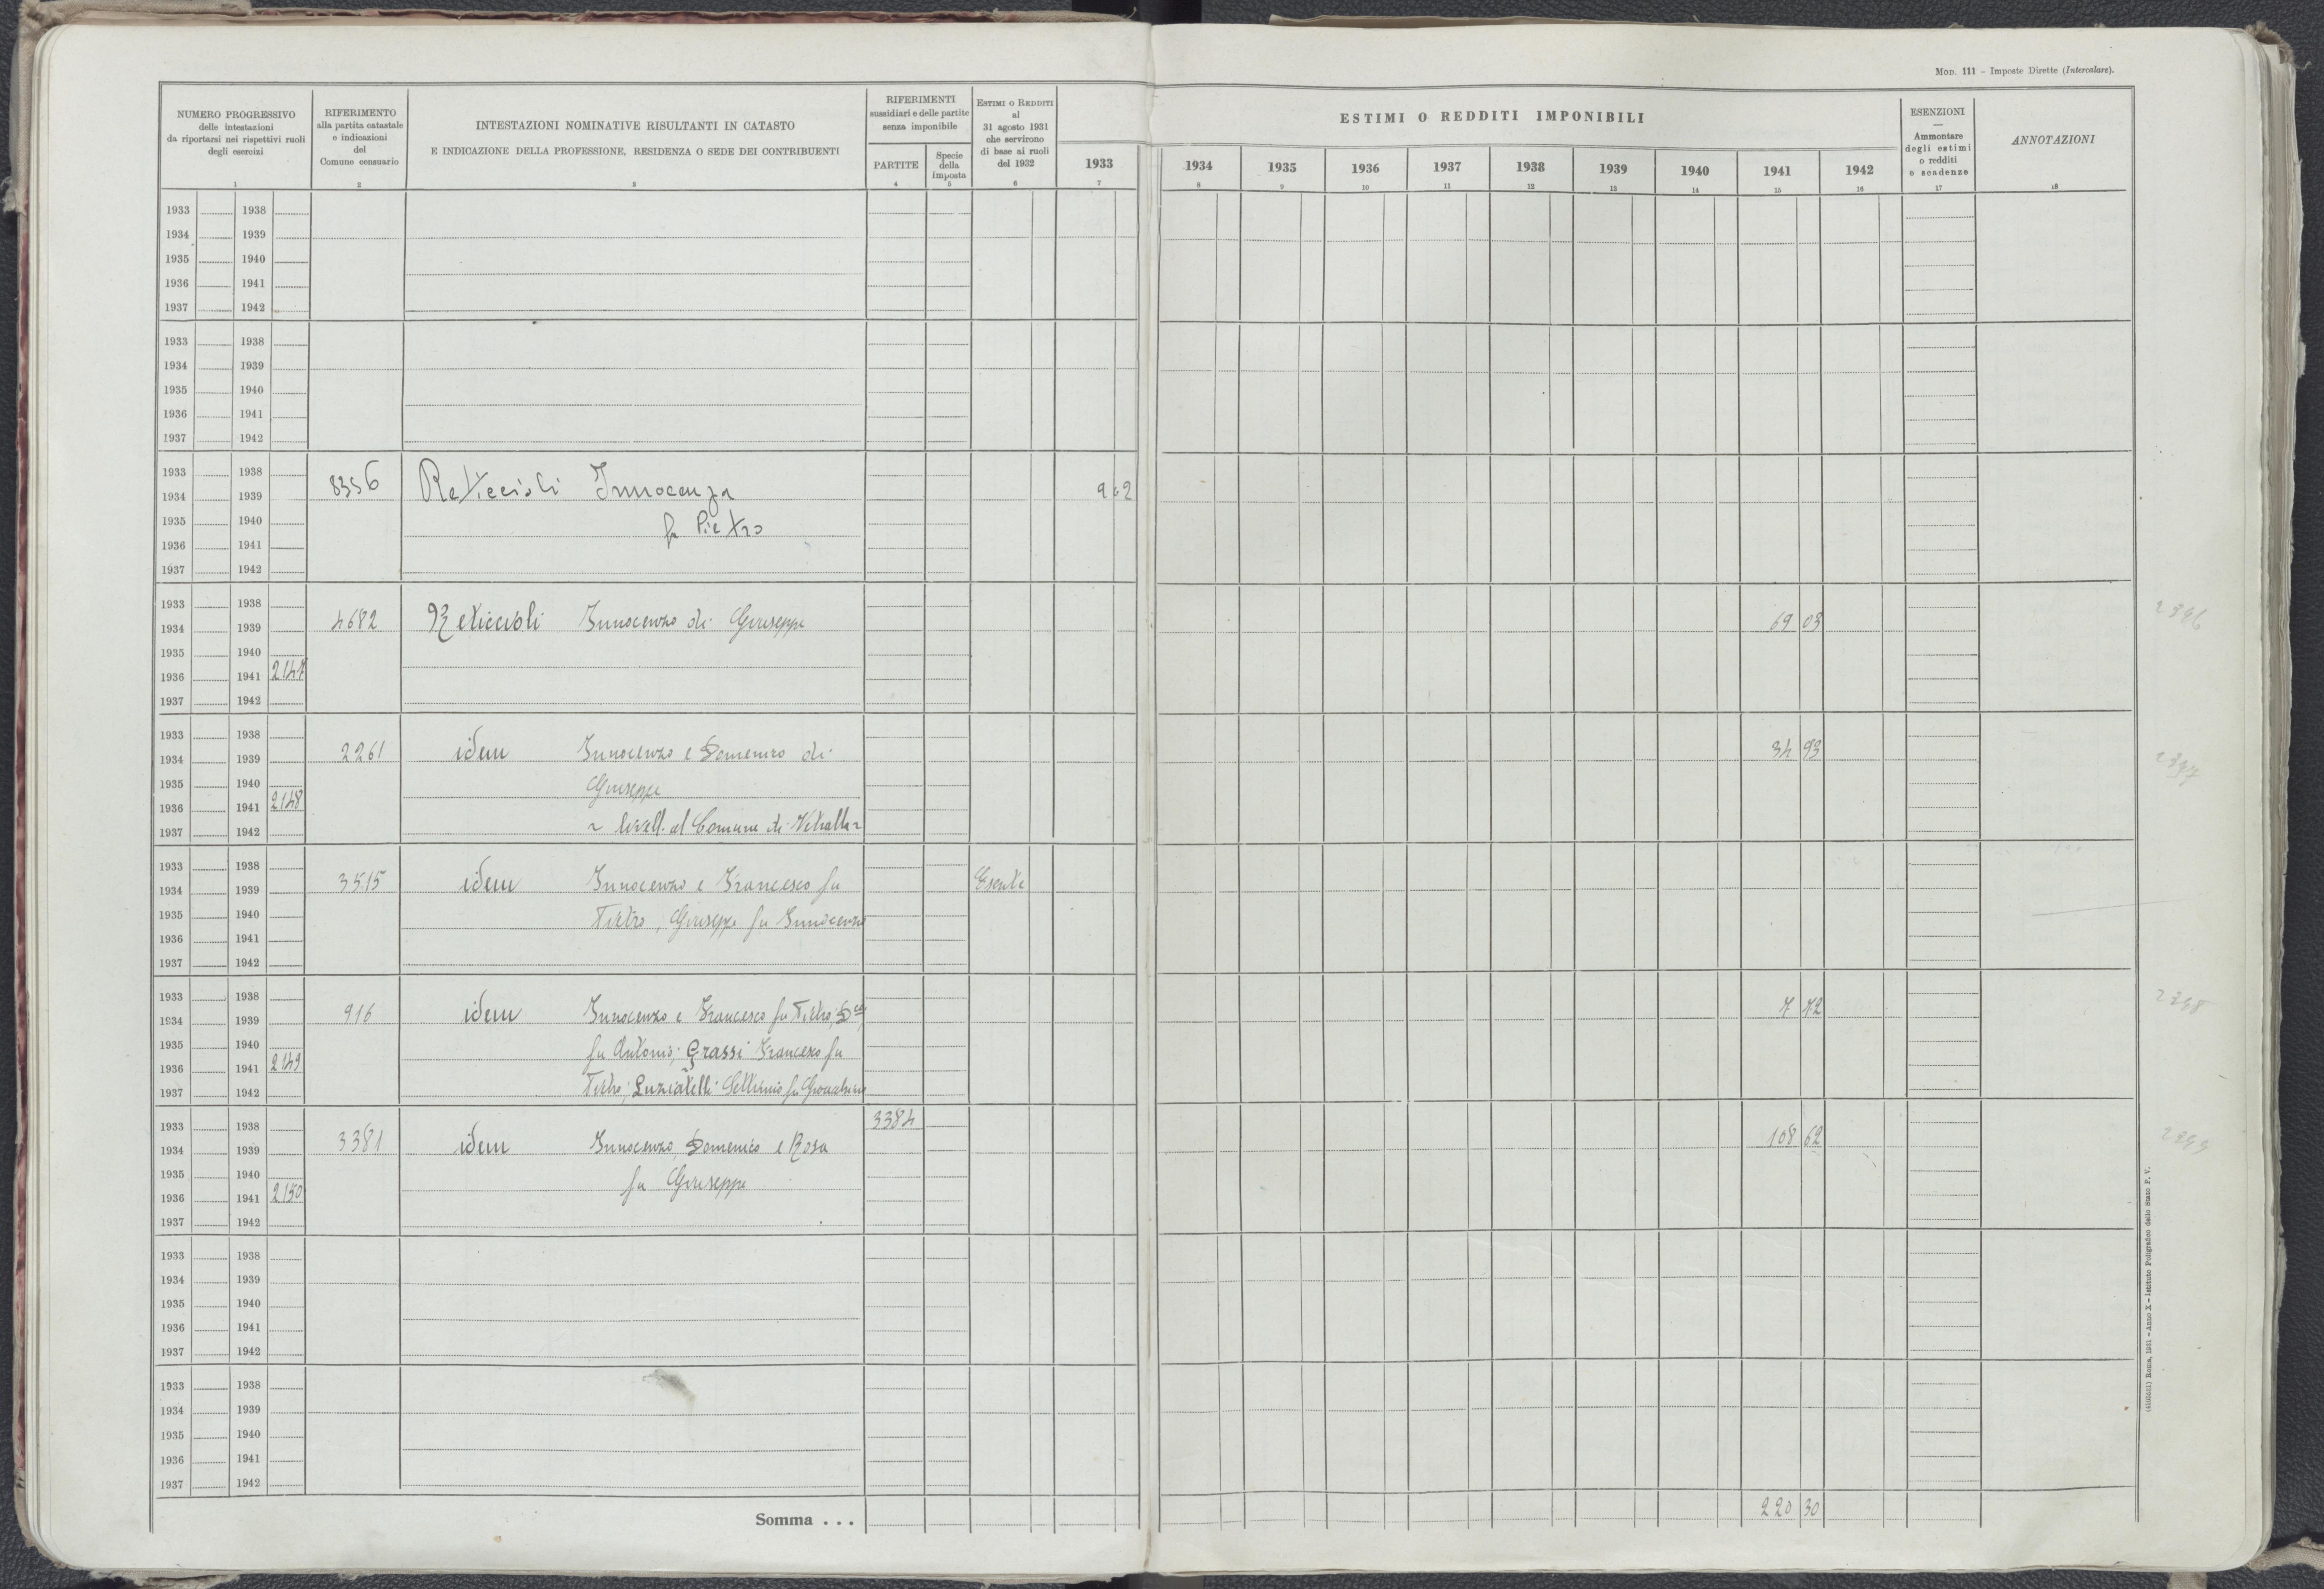 MOD. 111 - Imposte Dirette (Intercalare).
NUMERO PROGRESSIVO
delle intestazioni
da riportarsi nei rispettivi ruoli
degli esercizi
1
RIFERIMENTO
alla partita catastale
e indicazioni
del
Comune censuario
2
INTESTAZIONI NOMINATIVE RISULTANTI IN CATASTO
E INDICAZIONE DELLA PROFESSIONE, RESIDENZA O SEDE DEI CONTRIBUENTI
3
RIFERIMENTI
sussidiari e delle partite
senza imponibile
PARTITE
4
Specie
della
imposta
5
ESTIMI O REDDITI
al
31 agosto 1931
che servirono
di base ai ruoli
del 1932
6
ESTIMI O REDDITI IMPONIBILI
1933 1934 1935 1936 1937 1938 1939 1940 1941 1942
7 8 9 10 11 12 13 14 15 16
ESENZIONI
—
Ammontare
degli estimi
o redditi
e scadenze
17
ANNOTAZIONI
18
1933 1938
1934 1939
1935 1940
1936 1941
1937 1942
1933 1938
1934 1939
1935 1940
1936 1941
1937 1942
1933 1938
1934 1939 8356 Reticcioli Innocenza
1935 1940 fu Pietro
1936 1941
1937 1942
1933 1938
1934 1939 4682 Reticcioli Innocenzo di Giuseppe 69 03 2396
1935 1940
1936 1941 2147
1937 1942
1933 1938
1934 1939 2261 idem Innocenzo e Domenico di 34 93 2397
1935 1940 Giuseppe
1936 1941 2148
1937 1942 livell. al Comune di Vetralla
1933 1938
1934 1939 3515 idem Innocenzo e Francesco fu Esente
1935 1940 Pietro, Giuseppe fu Innocenzo
1936 1941
1937 1942
1933 1938
1934 1939 916 idem Innocenzo e Francesco fu Pietro; Dco 7 72 2398
1935 1940 fu Antonio; Grassi Francesco fu
1936 1941 2149
1937 1942 Pietro; Luziatelli Settimio fu Gioacchino
1933 1938 3384
1934 1939 3381 idem Innocenzo, Domenico e Rosa 108 62 2399
1935 1940 fu Giuseppe
1936 1941 2150
1937 1942
1933 1938
1934 1939
1935 1940
1936 1941
1937 1942
1933 1938
1934 1939
1935 1940
1936 1941
1937 1942
Somma . . . 220 30
Roma, 1931 - Anno X - Istituto Poligrafico dello Stato P. V.